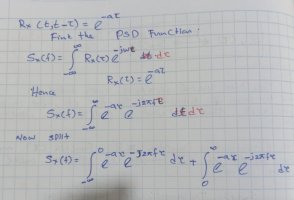 Rx (t, t-τ) = e^-aτ
Find the PSD Function.
Sx(f) = ∫_-∞^∞ Rx(τ) e^-jωτ dτ
Rx(τ) = e^-aτ
Hence
Sx(f) = ∫_-∞^∞ e^-aτ e^-j2πfτ dτ
Now split
Sx(f) = ∫_-∞^0 e^-aτ e^-j2πfτ dτ + ∫_0^∞ e^-aτ e^-j2πfτ dτ